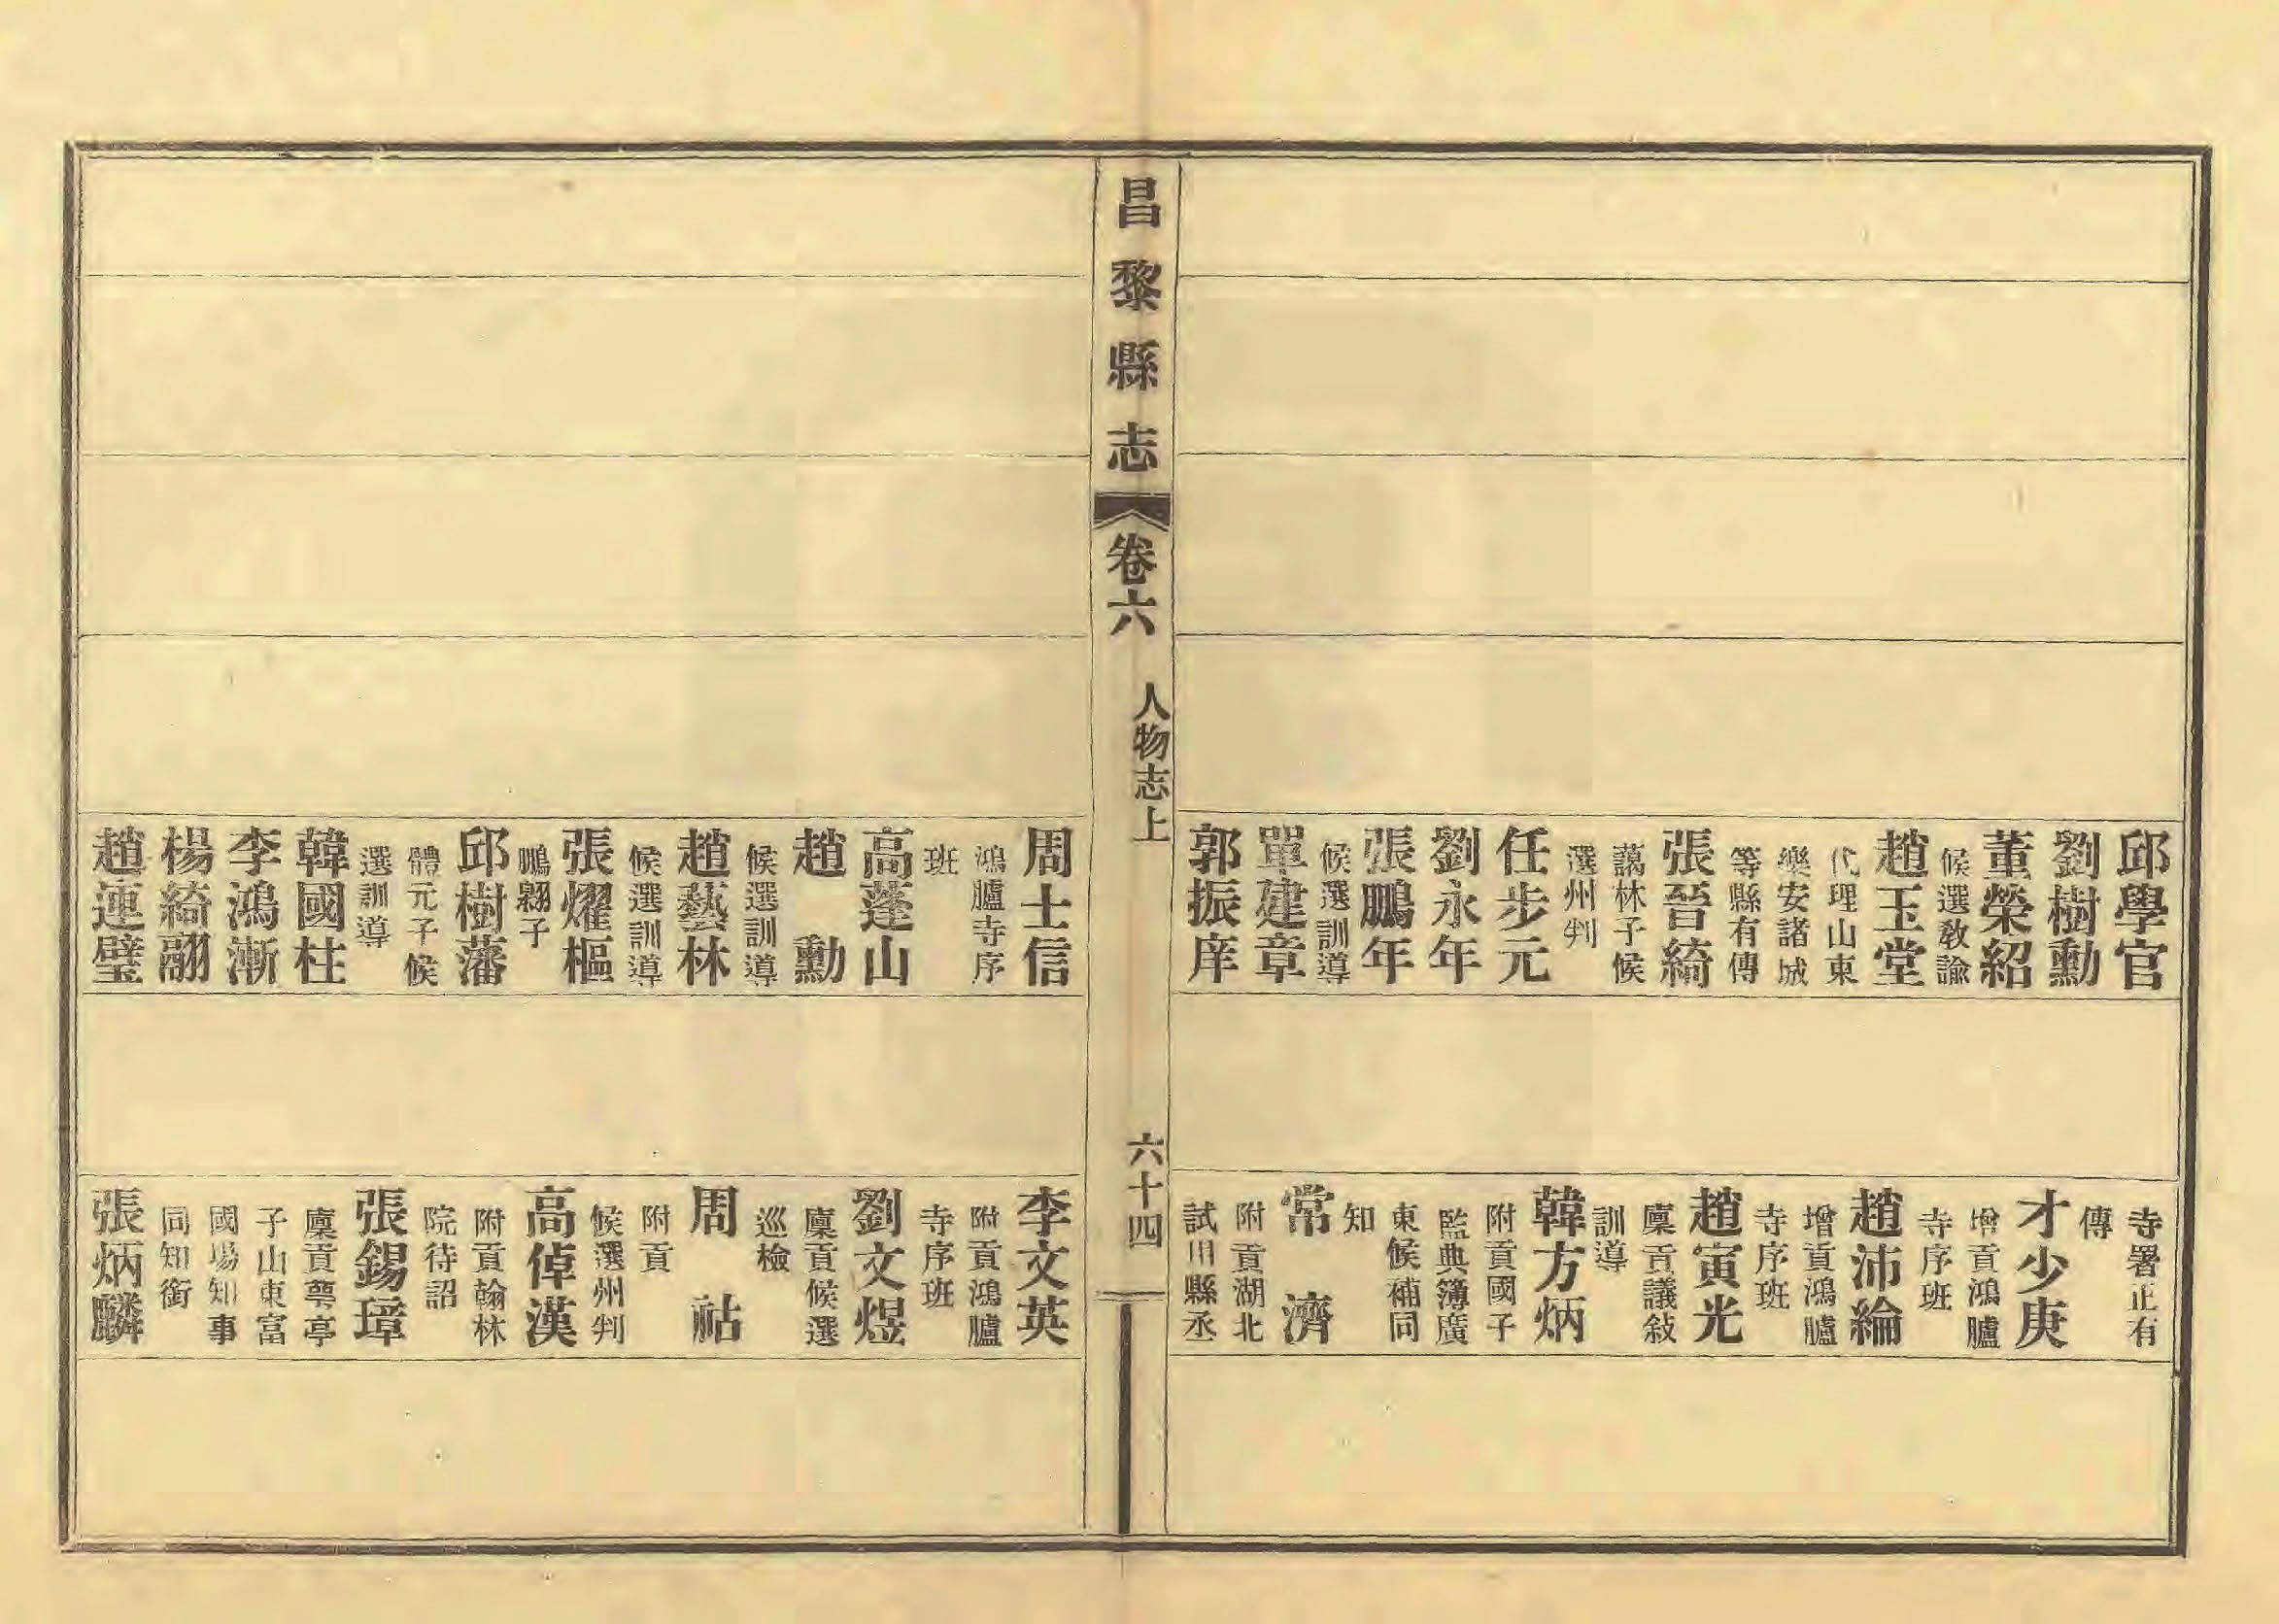 邱學官
劉樹勳
董榮紹
候選教諭
趙玉堂
代理山東
樂安諸城
等縣有傳
張晉綺
藹林子候
選州判
任步元
劉永年
張鵬年
候選訓導
單建章
郭振庠
寺署正有
傳
才少庚
增貢鴻臚
寺序班
趙沛綸
增貢鴻臚
寺序班
趙寅光
廩貢議敍
訓導
韓方炳
附貢國子
監典簿廣
東候補同
知
常濟
附貢湖北
試用縣丞
昌黎縣志
卷六
人物志上
六十四
周士信
鴻臚寺序
班
高蓬山
趙勳
候選訓導
趙藝林
候選訓導
張燿樞
鵬翱子
邱樹藩
體元子候
選訓導
韓國柱
李鴻漸
楊綺翮
趙連璧
李文英
附貢鴻臚
寺序班
劉文煜
廩貢候選
巡檢
周祜
附貢
候選州判
高倬漢
附貢翰林
院待詔
張錫璋
廩貢蕚亭
子山東富
國場知事
同知銜
張炳麟